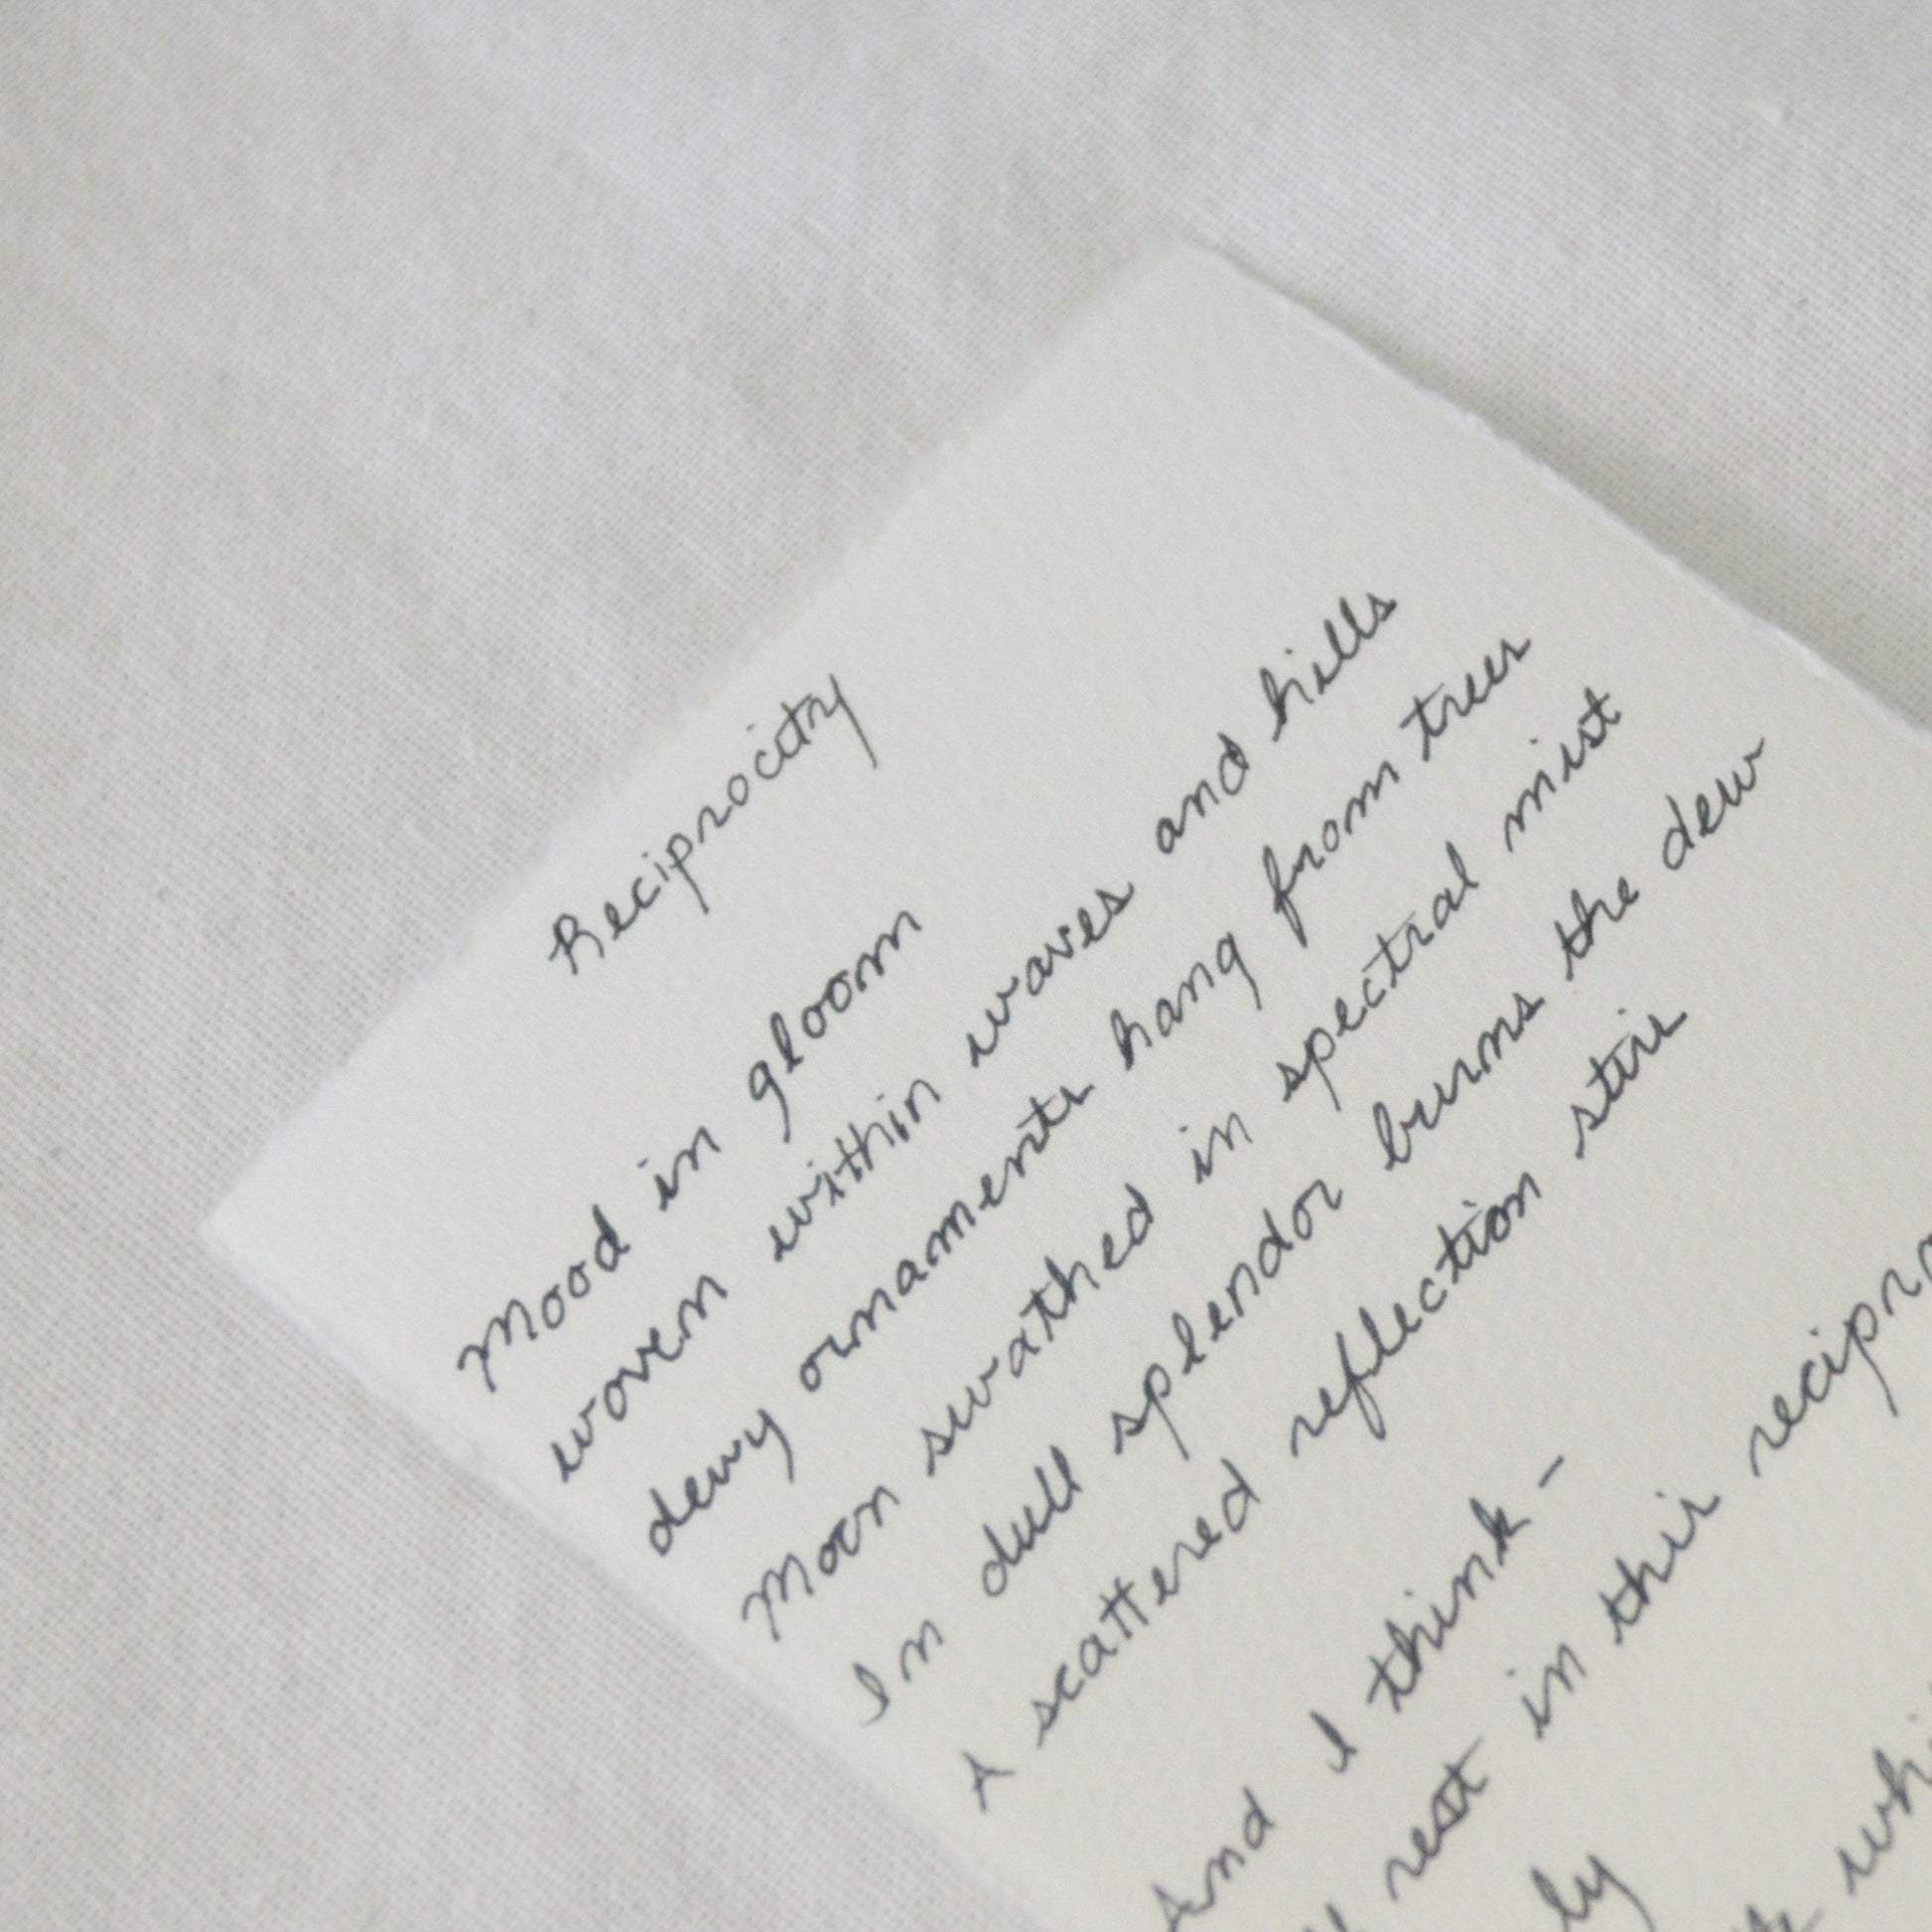 Reciprocity
Mood in gloom
woven within waves and hills
dewy ornaments hang from trees
Moon swathed in spectral mist
In dull splendor burns the dew
A scattered reflection stirs
And I think -
rest in this